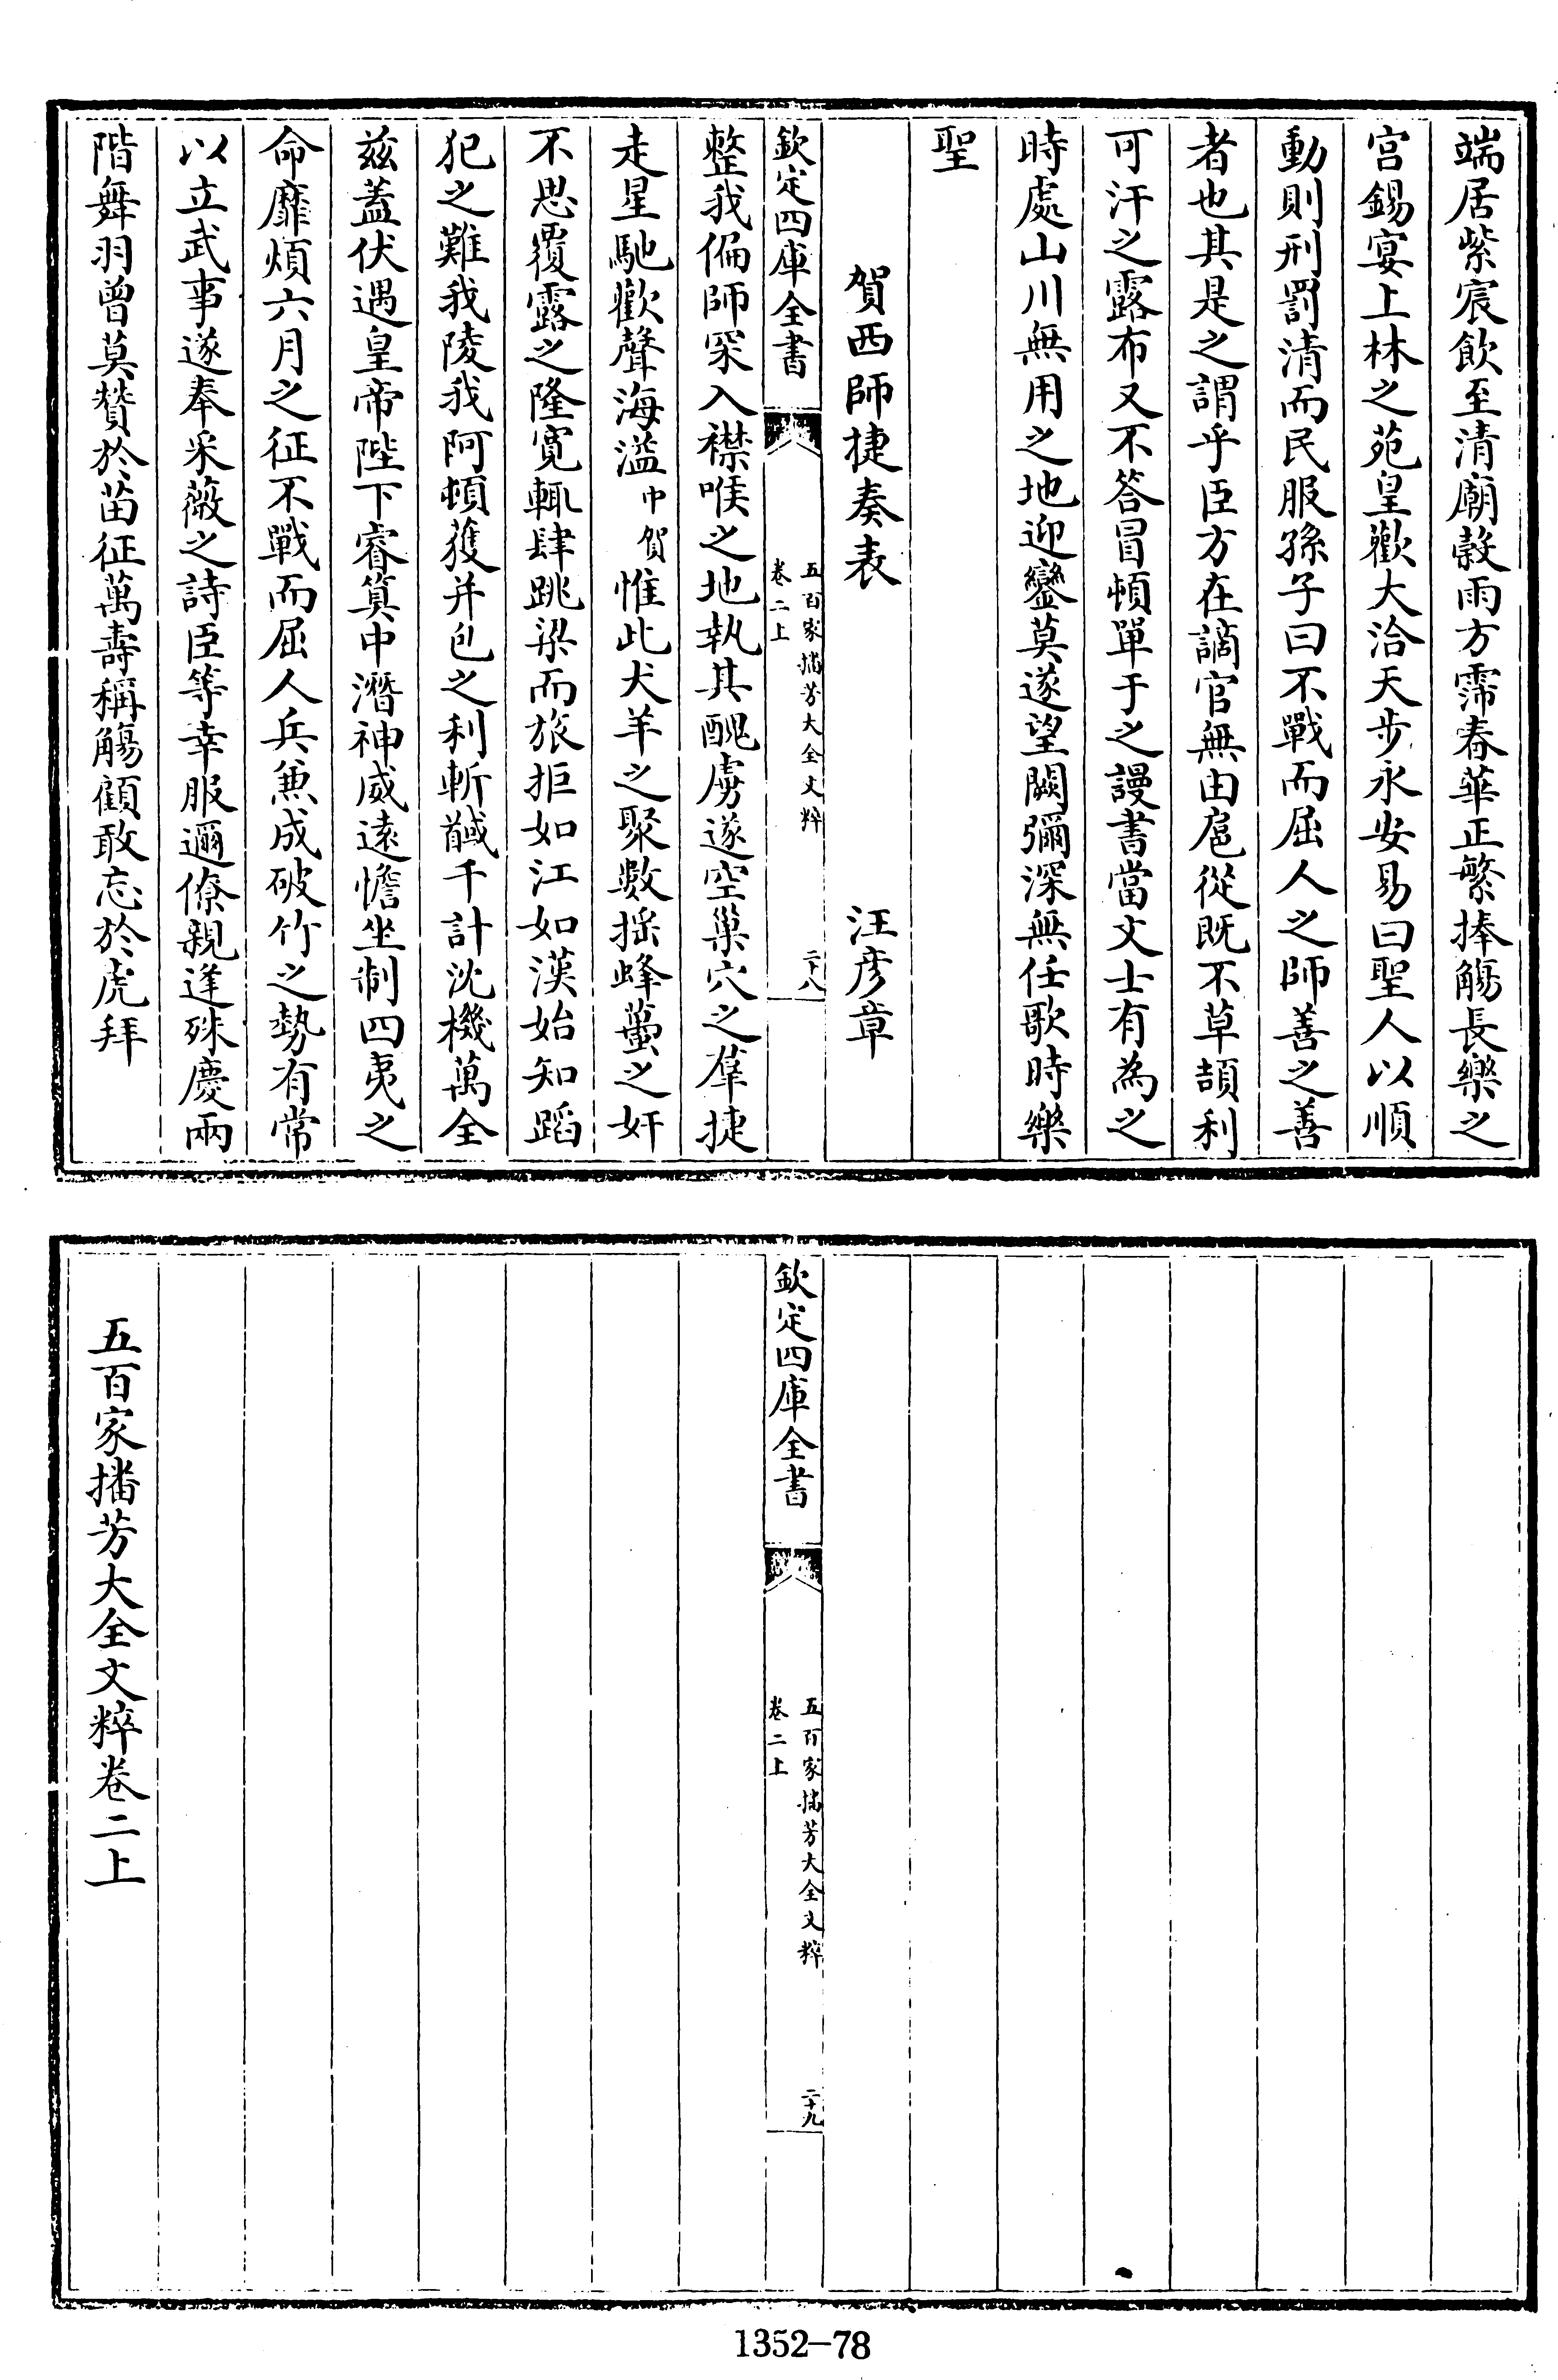 端居紫宸飲至清廟穀雨方霈春華正繁捧觴長樂之
宫錫宴上林之苑皇歡大洽天步永安易曰聖人以順
動則刑罰清而民服孫子曰不戰而屈人之師善之善
者也其是之謂乎臣方在謫官無由扈從既不草頡利
可汗之露布又不答冒頓單于之謾書當文士有為之
時處山川無用之地迎鑾莫遂望闕彌深無任歌時樂
聖
賀西師捷奏表　汪彦章
欽定四庫全書
五百家播芳大全文粹
卷二上
二十八
整我偏師罙入襟喉之地執其醜虜遂空巢穴之羣捷
走星馳歡聲海溢中賀惟此犬羊之聚數揺蜂蠆之奸
不思覆露之隆寛輒肆跳梁而旅拒如江如漢始知蹈
犯之難我陵我阿頓獲并包之利斬馘千計沈機萬全
兹蓋伏遇皇帝陛下睿筭中潛神威逺憺坐制四夷之
命靡煩六月之征不戰而屈人兵兼成破竹之勢有常
以立武事遂奉采薇之詩臣等幸服邇僚親逢殊慶兩
階舞羽曾莫贊於苗征萬壽稱觴顧敢忘於虎拜
欽定四庫全書
五百家播芳大全文粹
卷二上
二十九
五百家播芳大全文粹卷二上
1352-78